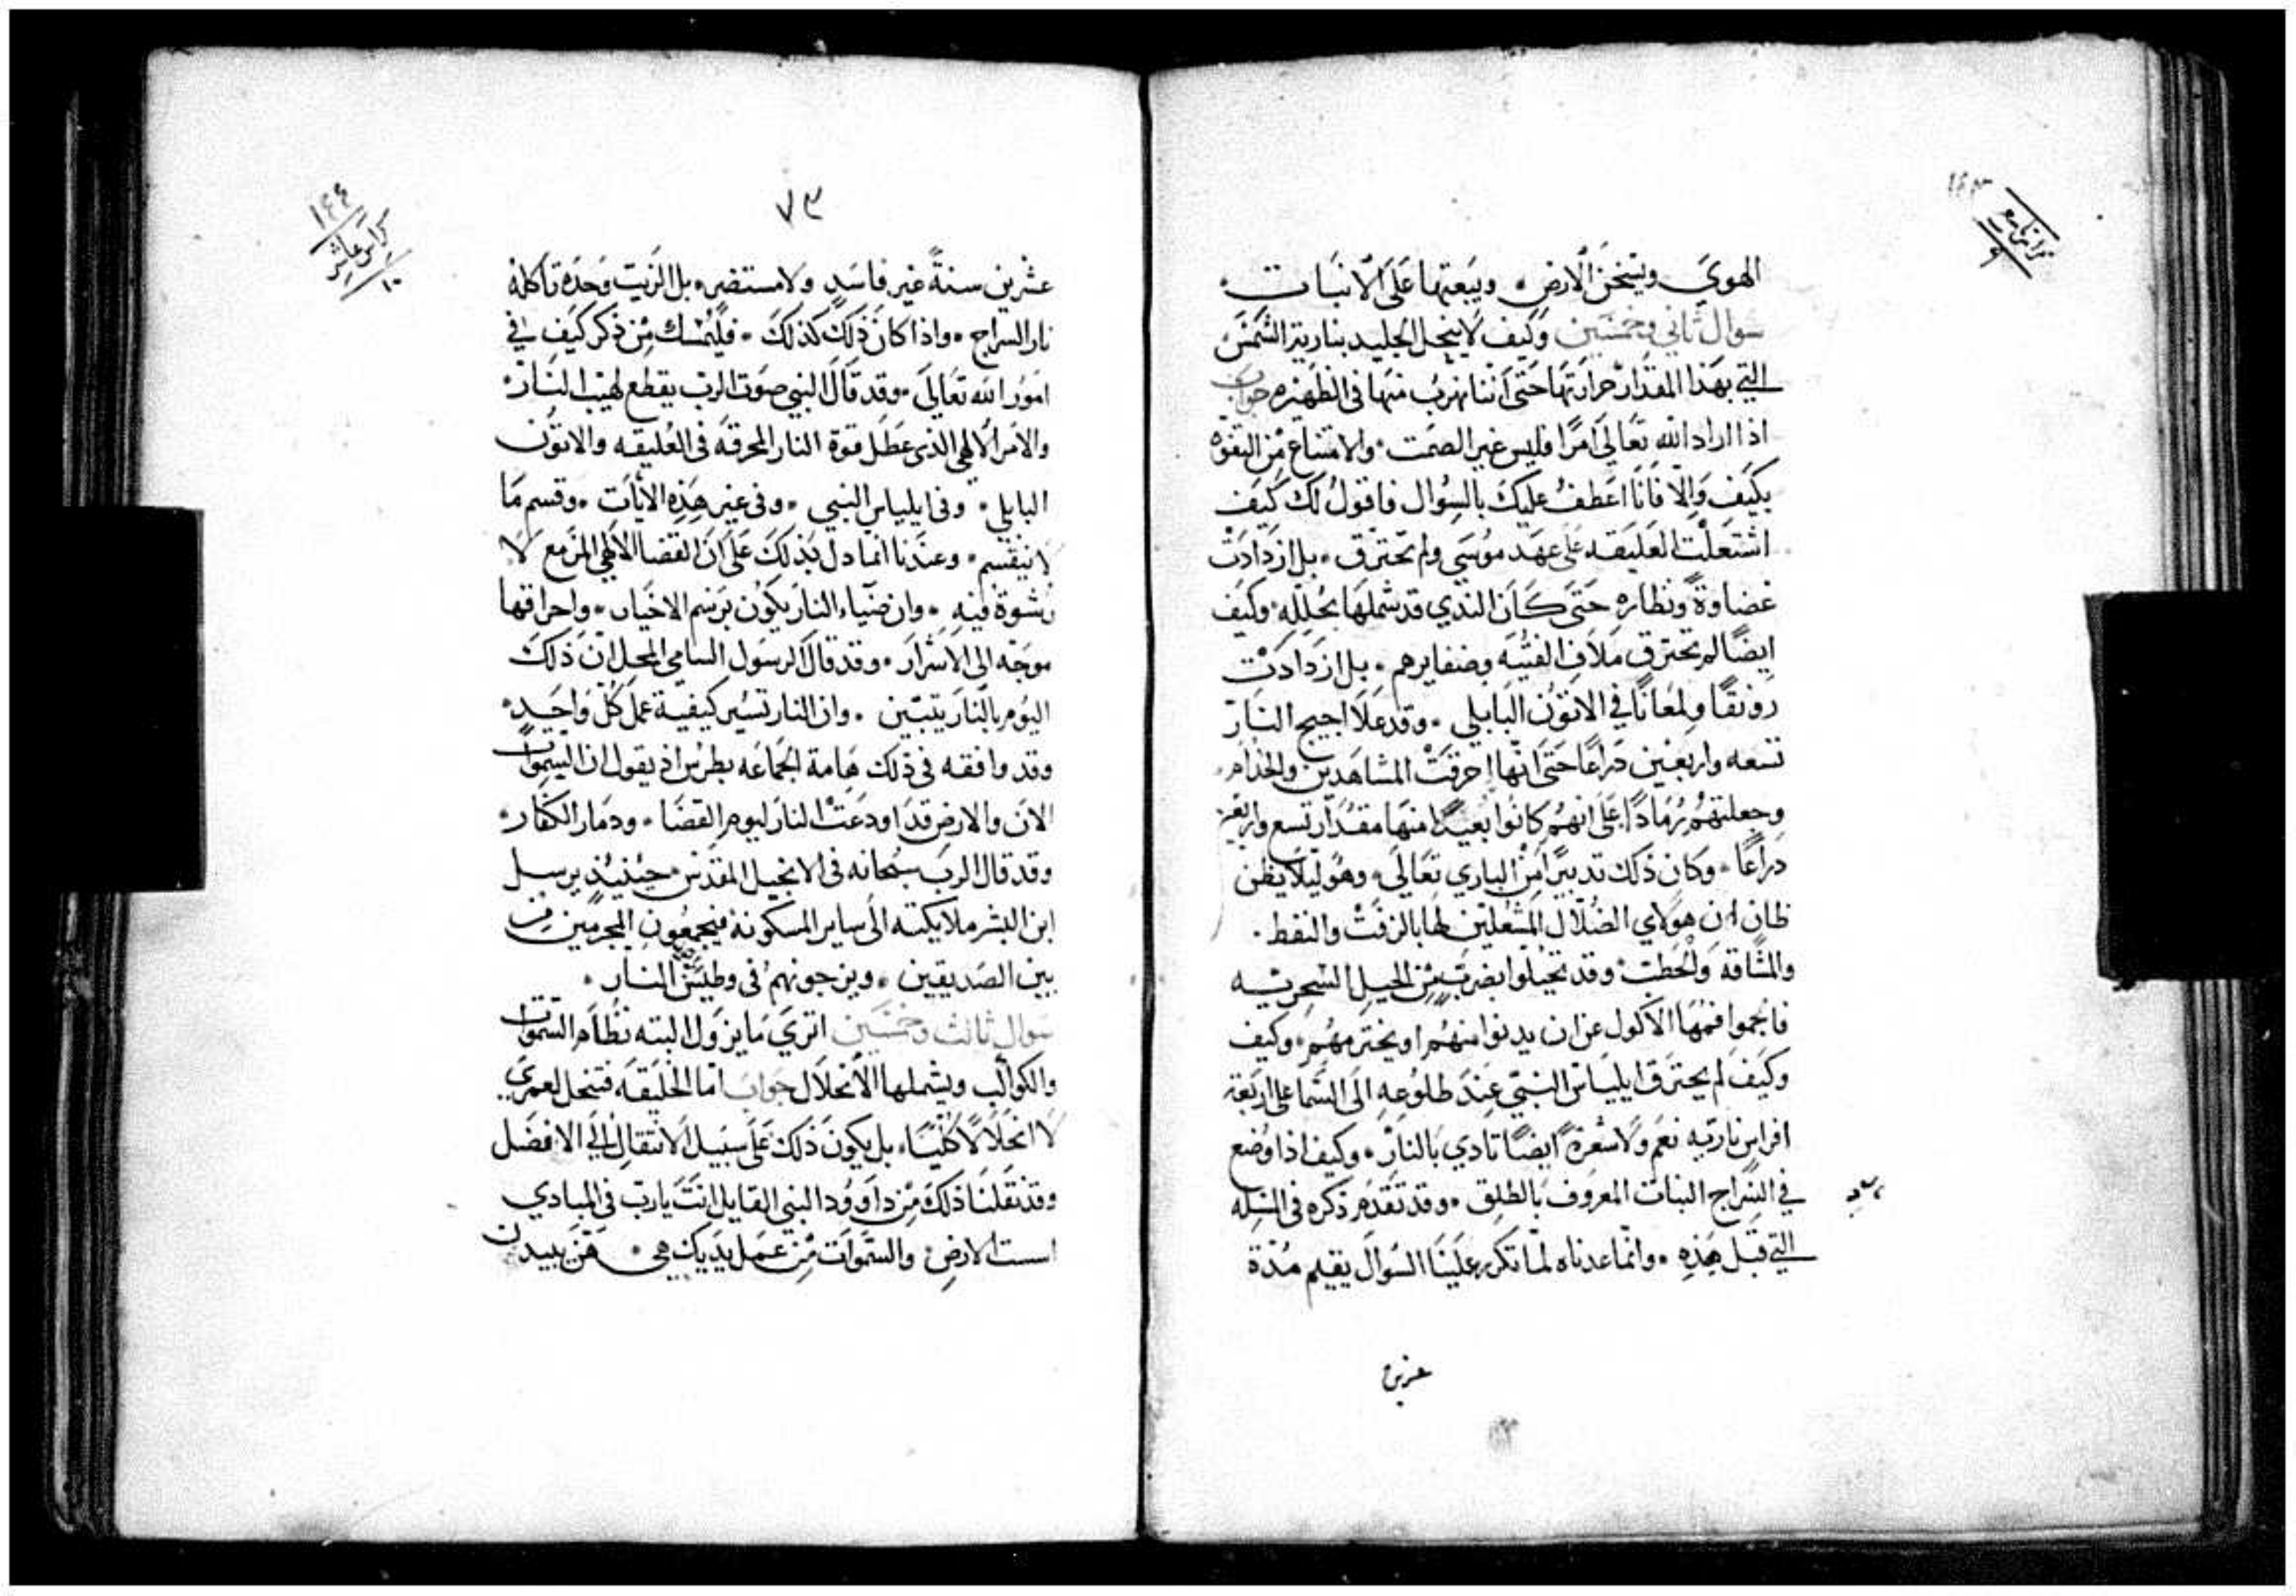 ١٤٣
كراس تاسع
٩
الهوي ويسخن الارض ٠ ويبعتها على الانبات ٠
سوال ثاني وخمسين وكيف لا ينحل الجليد بنارية الشمس
التي بهذا المقدار حرارتها حتى اننا نهرب منها في الظهيره جواب
اذا اراد الله تعالي امرًا فليس غير الصمت ٠ والامتناع من التفوه
بكيف والا فانا اعطف عليك بالسوال فاقول لك كيف
اشتعلت العليقه على عهد موسي ولم تحترق ٠ بل ازدادت
غضاوةً ونظاره حتى كان الندي قد شملها بجلله ٠ وكيف
ايضًا لم تحترق ملاف الفتيه وضفايرهم ٠ بل ازدادت
رونقًا ولمعانًا في الاتون البابلي ٠ وقد علا اجيج النار
تسعه واربعين دراعًا حتى انها احرقت المشاهدين والخدام ٠
وجعلتهم رمادًا على انهم كانوا بعيدًا منها مقدار تسع واربعين
دراعًا ٠ وكان ذلك تدبيرًا من الباري تعالى ٠ وهو ليلا يظن
ظان ان هولاي الضلال المشعلين لها بالزفت والنفط ٠
والمشاقه والحطب ٠ وقد تحيلوا بضربٍ من الحيل السحريه
فالجموا فمها الاكول عن ان يدنوا منهم او يخترمهم ٠ وكيف
وكيف لم يحترق ايلياس النبي عند طلوعه الى السما على اربعة
افراس ناريه نعم ولا شعرةً ايضًا تادي بالنار ٠ وكيف اذا وضع
في السراج النبات المعروف بالطلق ٠ وقد تقدم ذكره في المسله
التي قبل هذه ٠ وانما عدناه لما تكرر علينا السوال يقيم مدة
عشرين
١٤٤
كراس عاشر
١٠
٧٣
عشرين سنةً غير فاسدٍ ولا مستضر ٠ بل الزيت وحده تاكله
نار السراج ٠ واذا كان ذلك كذلك ٠ فليمسك من ذكر كيف في
امور الله تعالى ٠ وقد قال النبي صوت الرب يقطع لهيب النار ٠
والامر الالهي الذي عطل قوة النار المحرقه في العليقه والاتون
البابلي ٠ وفي ايلياس النبي ٠ وفي غير هذه الايات ٠ وقسم ما
لا ينقسم ٠ وعندنا انما دل بذلك على ان القضا الالهي المزمع لا
رشوة فيه ٠ وان ضياء النار يكون برسم الاخيار ٠ واحراقها
موجه الى الاشرار ٠ وقد قال الرسول السامي المحل ان ذلك
اليوم بالنار يتبين ٠ وان النار تسبر كيفية عمل كل واحدٍ ٠
وقد وافقه في ذلك هامة الجماعه بطرس اذ يقول ان السموات
الان والارض قد اودعت النار ليوم القضا ٠ ودمار الكفار ٠
وقد قال الرب سبحانه في الانجيل المقدس ٠ حينيذٍ يرسل
ابن البشر ملايكته الى ساير المسكونه فيجمعون المجرمين من
بين الصديقين ٠ ويزجونهم في وطيس النار ٠
سوال ثالث وخمسين اتري ما يزول البته نظام السموات
والكواكب ويشملها الانحلال جواب اما الخليقه فتنحل لعمري
لا انحلالاً كليًا ٠ بل يكون ذلك على سبيل الانتقال الى الافضل
وقد نقلنا ذلك من داوود النبي القايل انت يارب في المبادي
اسست الارض والسموات من عمل يديك هي ٠ هن يبيدن